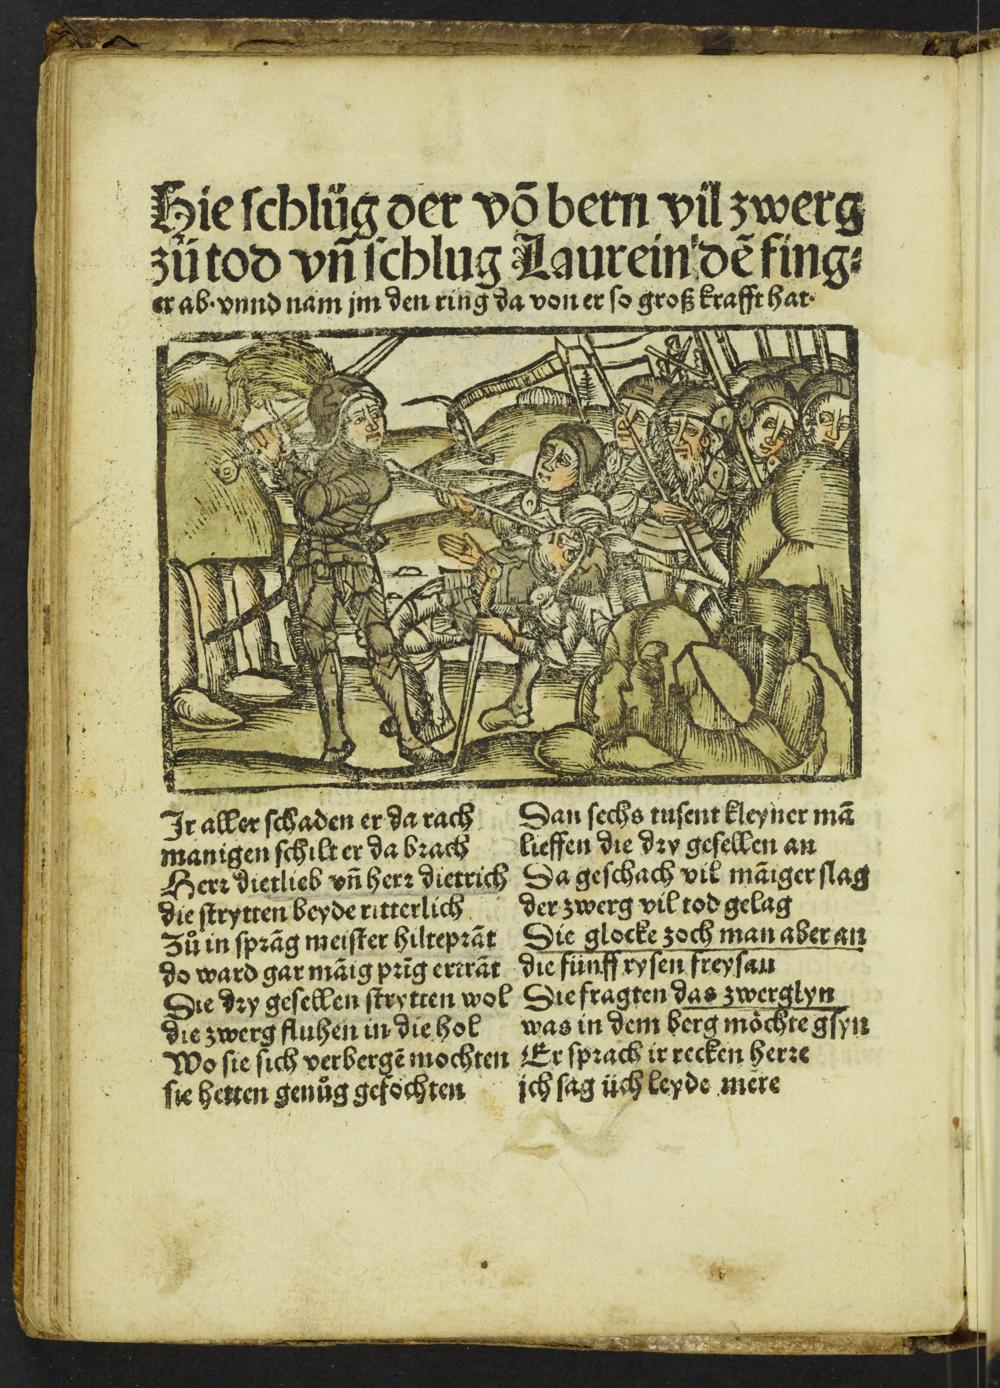 Hie schlůg der vō bern vil zwerg
zů tod vn̄ schlug Laurein dē fing⸗
er ab· vnnd nam jm den ring da von er so groß krafft hat·
Ir aller schaden er da rach
manigen schilt er da brach
Herr dietlieb vn̄ herr dietrich
die strytten beyde ritterlich
Zů in sprāg meister hilteprāt
do ward gar māig prīg ertrāt
Die dry gesellen strytten wol
die zwerg fluhen in die hol
Wo sie sich vergergē mochten
sie hetten genůg gefochten
Dan sechs tusent kleyner mā
lieffen die dry gesellen an
Da geschach vil māiger slag
der zwerg vil tod gelag
Die glocke zoch man aber an
die fünff rysen freysan
Sie fragten das zwerglyn
was in dem berg möchte gsyn
Er sprach ir recken herre
ich sag üch leyde mere